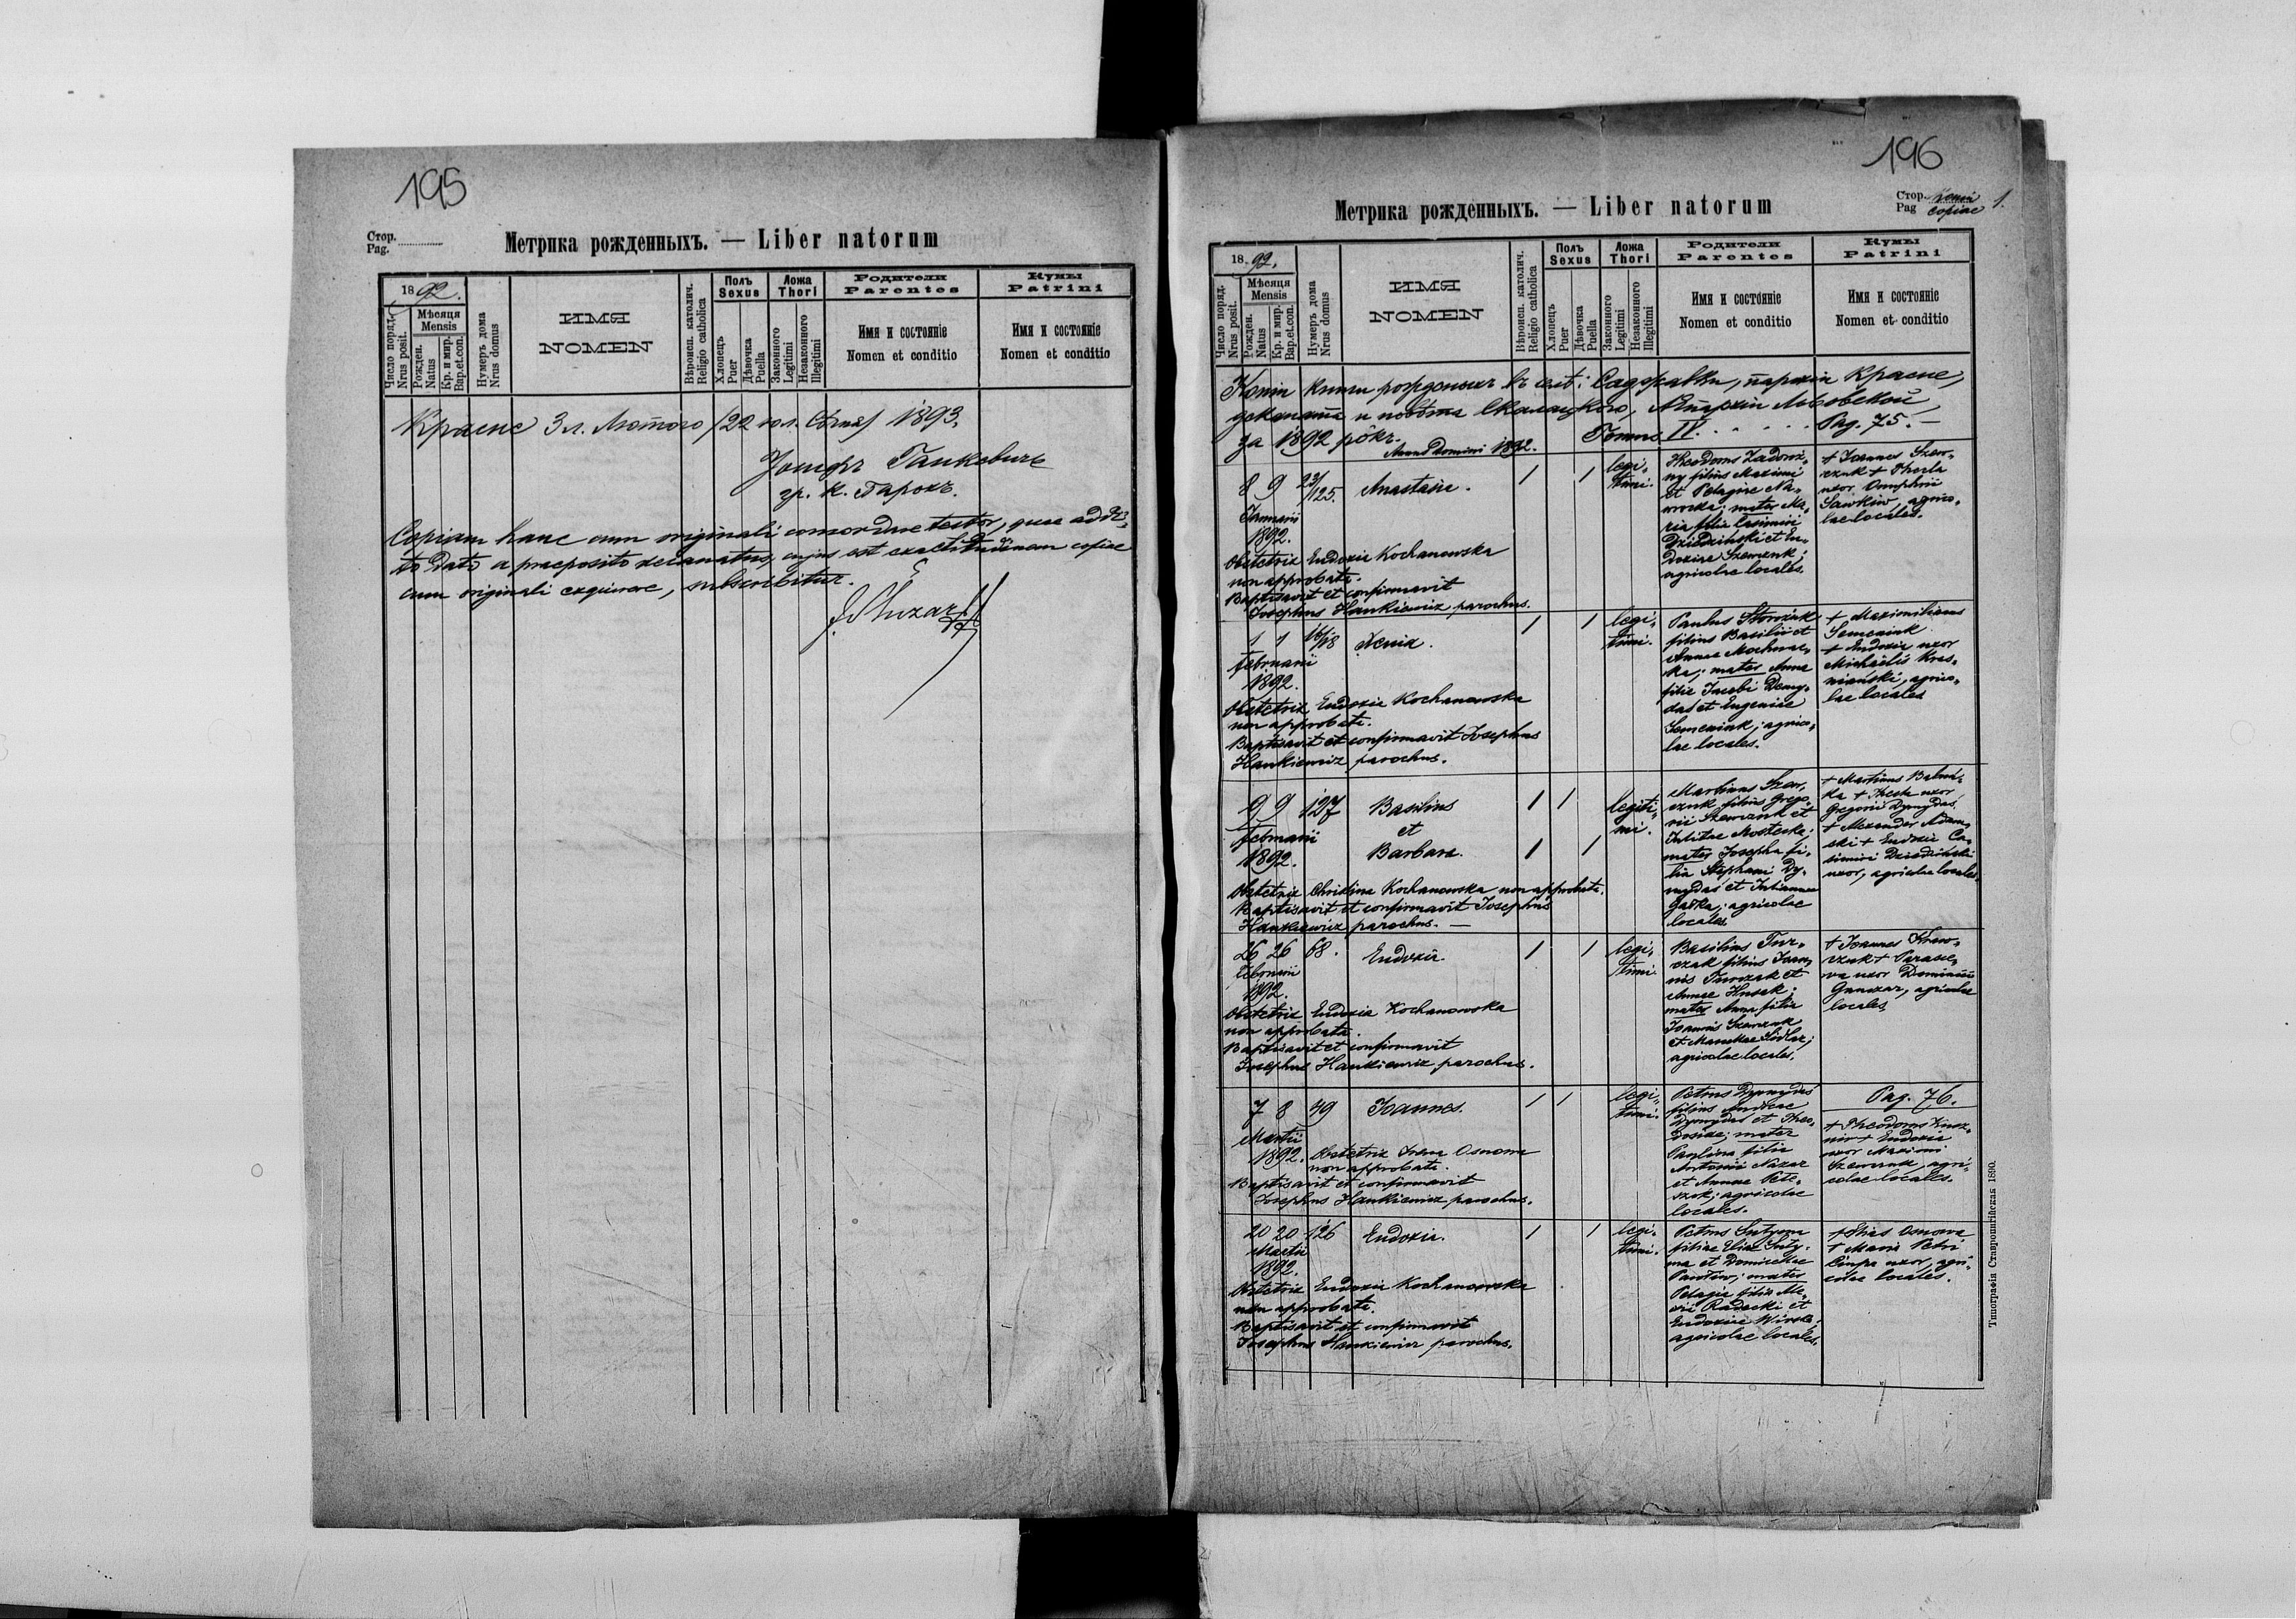 195
Стор.
Pag.
Метрика рожденныхъ. — Liber natorum
1892.
Число поряд.
Nrus posit.
Мѣсяця
Mensis
Рожден.
Natus
Кр. и мир.
Bap.et.con.
Нумеръ дома
Nrus domus
ИМЯ
NOMEN
Вѣроисп. католич.
Religio catholica
Полъ
Sexus
Хлопецъ
Puer
Дѣвочка
Puella
Ложа
Thori
Законного
Legitimi
Незаконного
Illegitimi
Родители
Parentes
Имя и состояніе
Nomen et conditio
Кумы
Patrini
Имя и состояніе
Nomen et conditio
Красне 3 л. Лютого /22 ю.л. Сѣчня/ 1893.
Іосифъ Ганкевичъ
гр. к. Парохъ.
Copiam hanc cum originali concordare testor, quae addi-
to Dato a praeposito decanatus, cujus est exactitudinem copiae
cum originali exquirere, subscribitur.
196
Стор.
Pag copiae 1.
Метрика рожденныхъ. — Liber natorum
1892.
Число поряд.
Nrus posit.
Мѣсяця
Mensis
Рожден.
Natus
Кр. и мир.
Bap.et.con.
Нумеръ дома
Nrus domus
ИМЯ
NOMEN
Вѣроисп. католич.
Religio catholica
Полъ
Sexus
Хлопецъ
Puer
Дѣвочка
Puella
Ложа
Thori
Законного
Legitimi
Незаконного
Illegitimi
Родители
Parentes
Имя и состояніе
Nomen et conditio
Кумы
Patrini
Имя и состояніе
Nomen et conditio
Копія книги рожденыхъ въ селѣ: Саджавки, парохіи Красне,
деканата и повѣта Скалацкого, Епархіи Львовской
за 1892 рôкъ. Tomus IV. . . . . . Pag. 75. —
Anno Domini 1892.
8 9 23/125. Anastasia. 1 1 legi-
timi.
Januarii
1892.
Obstetrix Eudoxia Kochanowska
non approbata.
Baptisavit et confirmavit
Josephus Hankiewicz parochus.
Theodorus Zadoroż-
ny filius Maximi
et Pelagiae Na-
wrocka; mater Ma-
ria filia Casimiri
Dziedzinski et Eu-
doxiae Szewczuk;
agricolae locales.
+ Joannes Szew-
czuk + Thecla
uxor Onuphrii
Sawkiw, agrico-
lae locales.
1 1 16/18 Xenia. 1 1 legi-
timi.
februarii
1892.
Obstetrix Eudoxia Kochanowska
non approbata.
Baptisavit et confirmavit Josephus
Hankiewicz parochus.
Paulus Storożuk
filius Basilii et
Annae Mochnac-
ka; mater Anna
filia Jacobi Demy-
das et Eugeniae
Semeniuk; agrico-
lae locales.
+ Maximilianus
Semeniuk
+ Eudoxia uxor
Michaëlis Kras-
niański, agrico-
lae locales
9 9 127 Basilius 1 1 legiti-
mi.
februarii et
1892. Barbara. 1 1
Obstetrix Christina Kochanowska non approbata.
Baptisavit et confirmavit Josephus
Hankiewicz parochus. —
Martinus Szew-
czuk filius Grego-
rii Szewczuk et
Julittae Mosteska;
mater Josepha fi-
lia Stephani Dy-
mydas et Julianna
Gaška; agricolae
locales.
ka + Thecla uxor
Gregorii Dymydas
+ Alexander Adam-
ski + Eudoxia Ca-
simiri Dziedzinski
uxor, agricolae locales.
26 26 68. Eudoxia. 1 1 legi-
timi.
februarii
1892.
Obstetrix Eudoxia Kochanowska
non approbata.
Baptisavit et confirmavit
Josephus Hankiewicz parochus.
Basilius Tur-
czak filius Joan-
nis Turczak et
Annae Husak;
mater Anna filia
Joannis Szewczuk
agricolae locales.
+ Joannes Szew-
czuk + Parasce-
va uxor Dominicii
Ganczar, agricolae
locales
7 8 39 Joannes. 1 1 legi-
timi.
Martii
1892.
Obstetrix Anna Osnowa
non approbata.
Baptisavit et confirmavit
Josephus Hankiewicz parochus.
Petrus Dymydas
filius Andreae
Dymydas et Theo-
dosiae; mater
Paulina filia
Antonii Nazar
et Annae Pete-
szak; agricolae
locales.
Pag. 76.
+ Eudoxia
uxor Maximi
Szewczuk, agri-
colae locales.
20 20 126 Eudoxia. 1 1 legi-
timi.
Martii
1892.
Obstetrix Eudoxia Kochanowska
non approbata.
Baptisavit et confirmavit
Josephus Hankiewicz parochus.
Petrus Smtyrna
mater
Pelagia filia Ale-
xii Radecki et
agricolae locales.
+ Elias Osnowa
+ Maria Petri
Ciupa uxor, agri-
colae locales.
Типографія Ставропигійская 1890.